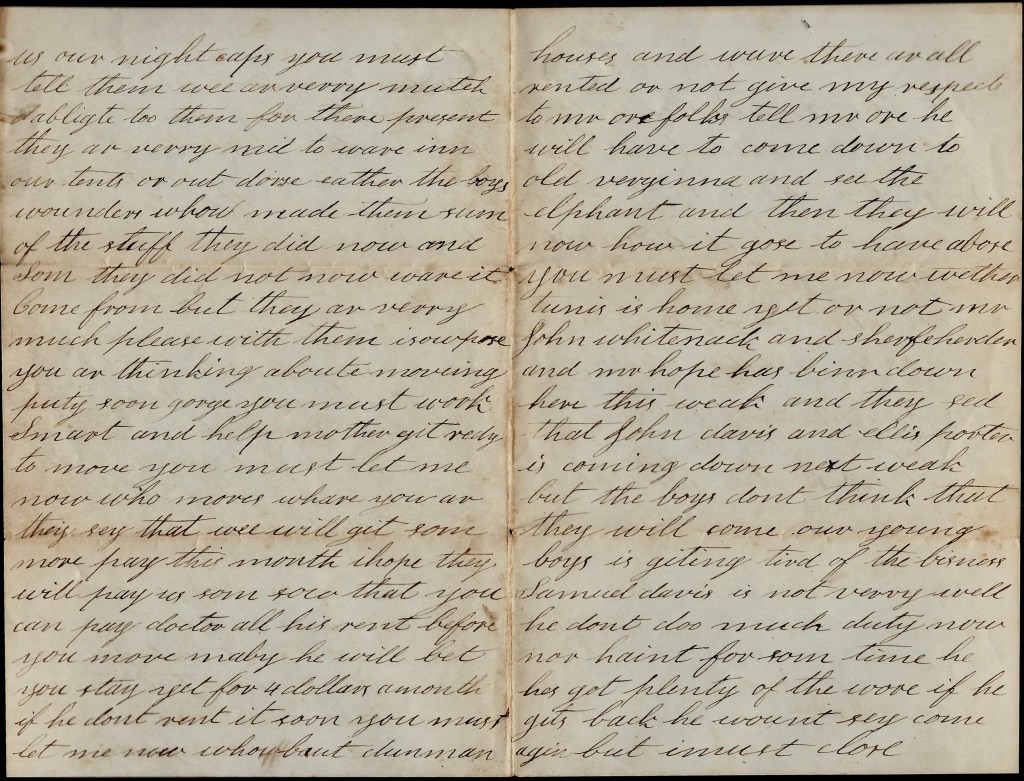 us our night caps you must
tell them wee ar verry mutch
abligte too them for there present
they ar verry nid to ware inn
our tents or out dorse eather the boys
wounders whow made them sum
of the stuff they did now and
som they did not now ware it
Come from but they ar verry
much please with them i sowpose
you ar thinking aboute moveing
puty soon gorge you must work
Smart and help mother git redy
to move you must let me
now who moves whare you ar
they sey that wee will git som
more pay this month i hope they
will pay us som sow that you
can pay doctor all his rent before
you move maby he will let
you stay yet for 4 dollars a month
if he dont rent it soon you must
let me now whow bauit dunman
houses and ware there ar all
rented or not give my respects
to mr ore folks tell mr ore he
will have to come down to
old verginna and see the
elphant and then they will
now how it gose to have abose
you must let me now wether
tunis is home yet or not mr
John whitenack and sherfeherder
and mr hope has binn down
here this weak and they sed
that John davis and ellis porter
is coming down next weak
but the boys dont think that
they will come our young
boys is giting tird of the bisness
Samuel davis is not verry well
he dont doo much duty now
nor haint for som time he
hes got plenty of the wore if he
gits back he wount sey come
agin but i must close